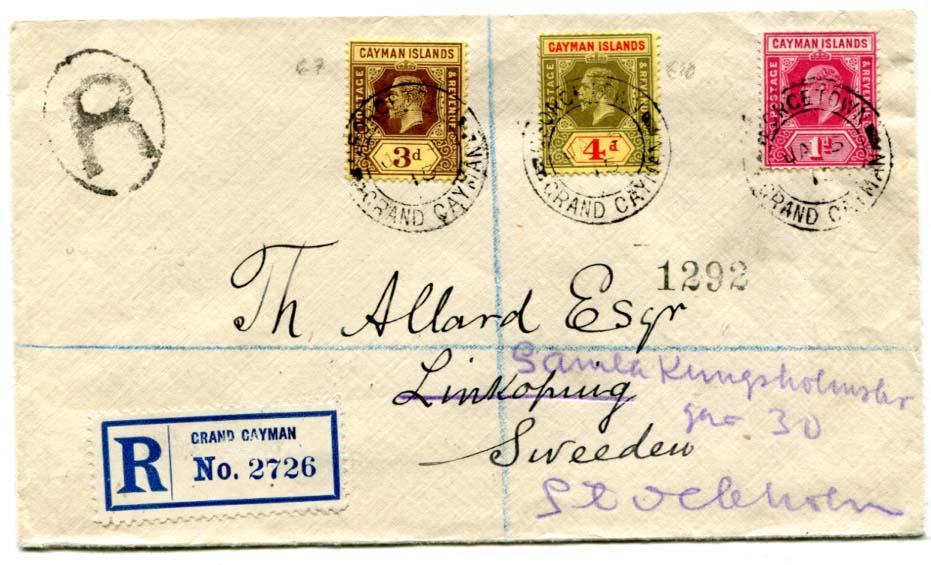 R
67
CAYMAN ISLANDS
POSTAGE & REVENUE
3d
GRAND CAYMAN
CAYMAN ISLANDS
POSTAGE & REVENUE
4d
GRAND CAYMAN
CAYMAN ISLANDS
POSTAGE & REVENUE
1d
GEORGETOWN
JA 5
GRAND CAYMAN
1292
Th Allard Esqr
Linkoping
Sweeden
30
Stockholm
R
GRAND CAYMAN
No. 2726